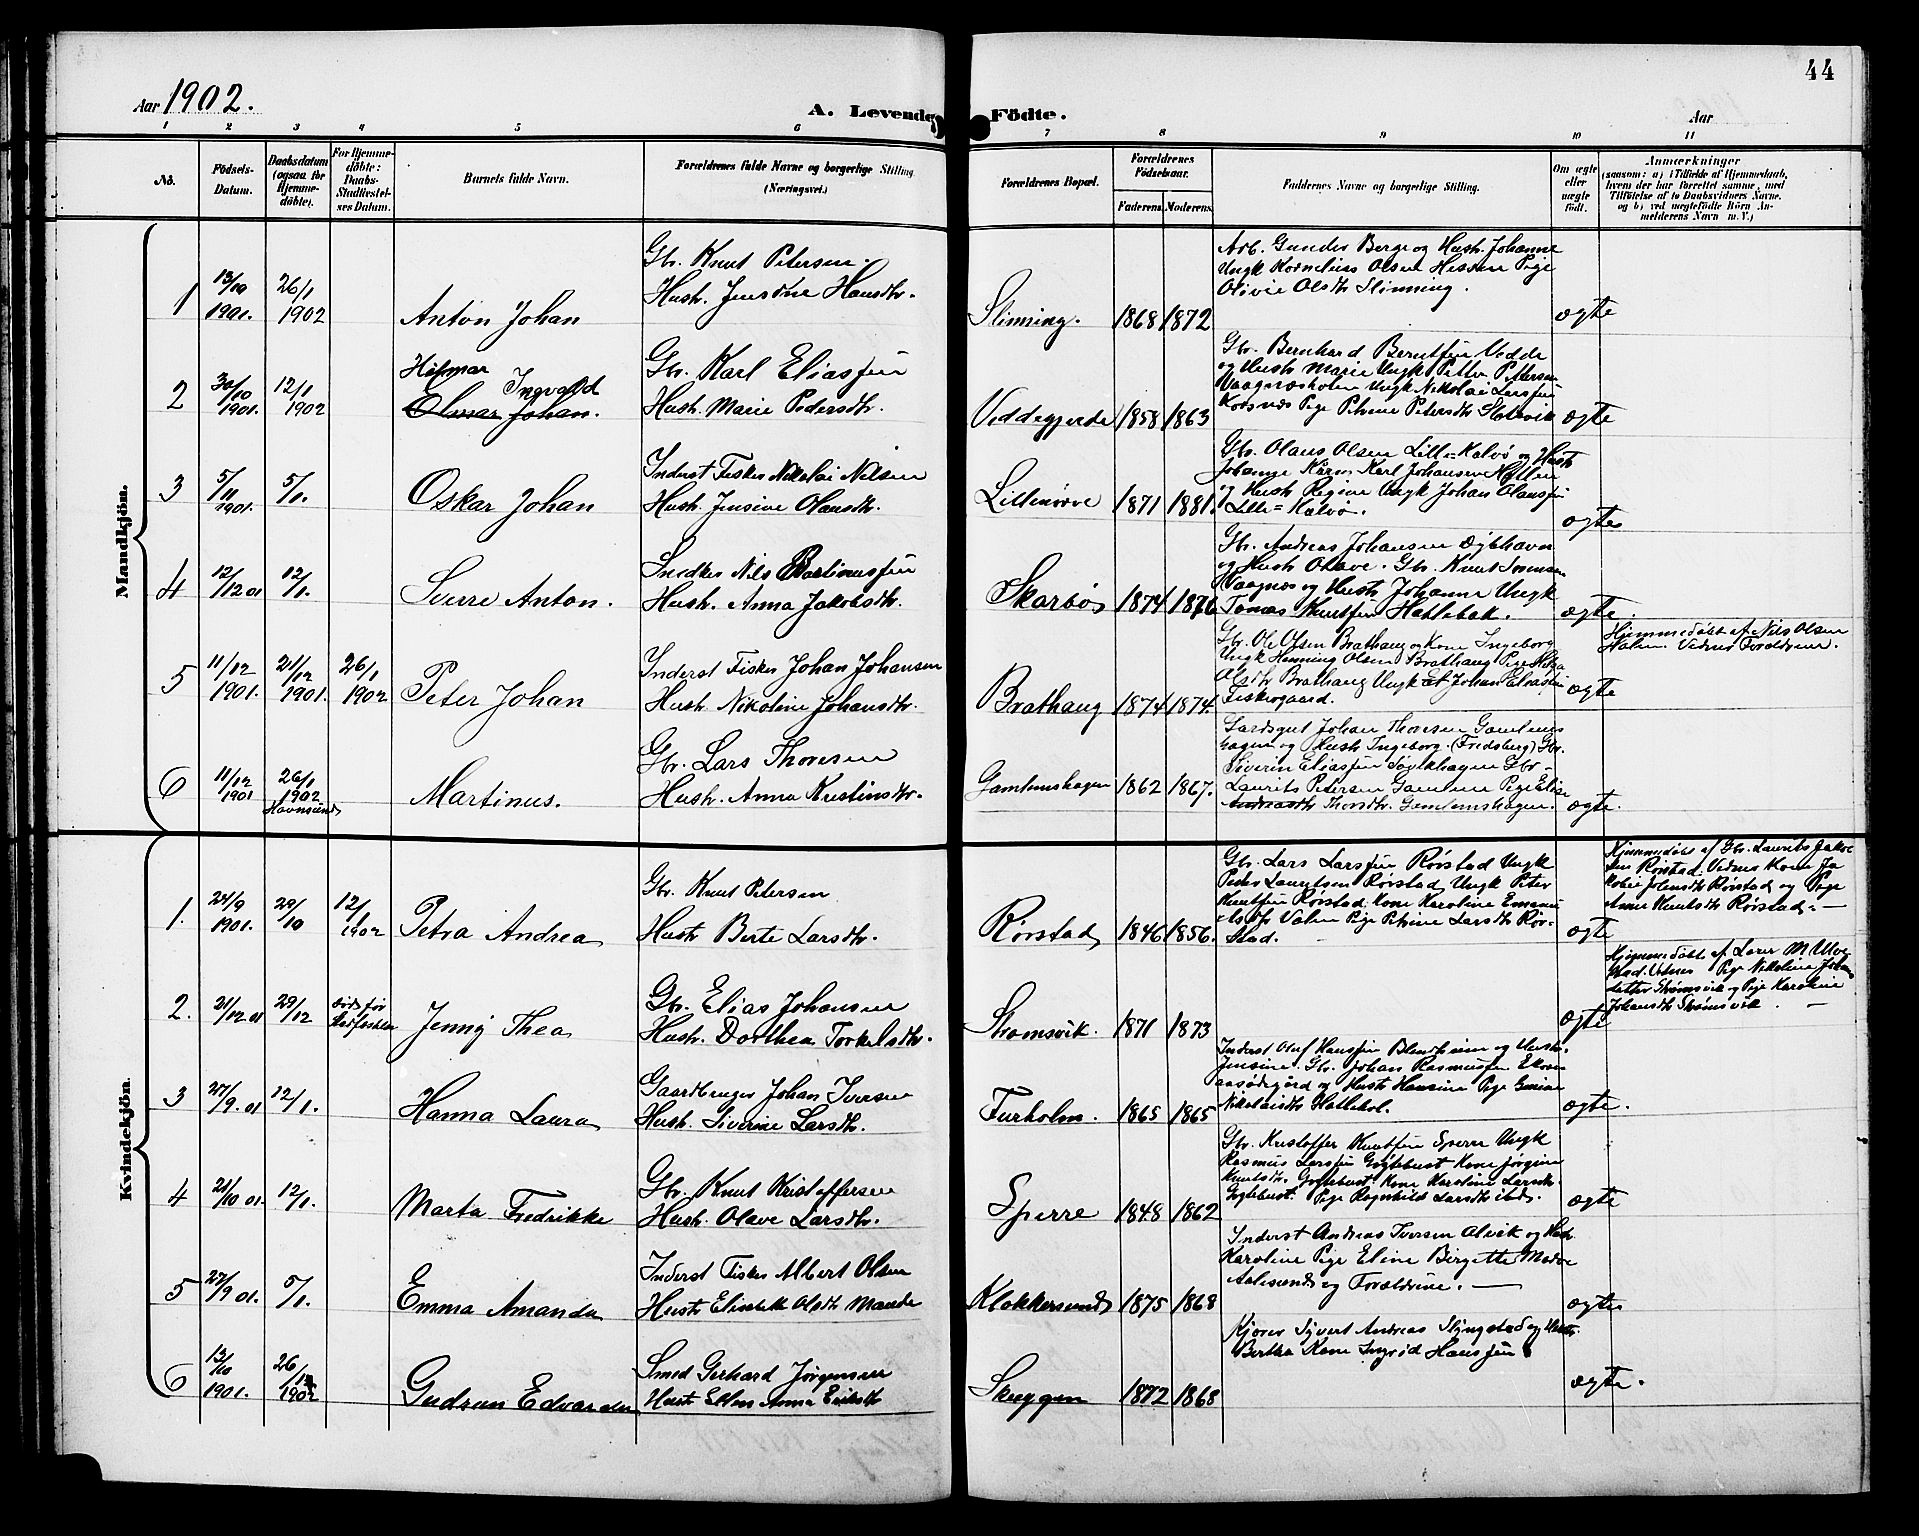 44
Aar 1902.
A. Levende Födte.
Aar
1 2 3 4 5 6 7 8 9 10 11
No.
Födsels-Datum.
Daabsdatum (ogsaa for Hjemme-döbte).
For Hjemme-döbte: Daabs-Stadfæstel-ses Datum.
Barnets fulde Navn.
Forældrenes fulde Navne og borgerlige Stilling. (Næringsvei.)
Forældrenes Bopæl.
Forældrenes Födselsaar.
Faderens. Moderens.
Faddernes Navne og borgerlige Stilling.
Om ægte eller uægte födt.
Anmærkninger
(saasom: a) i Tilfælde af Hjemmedaab, hvem der har forrettet samme, med Tilföielse af to Daabsvidners Navne, og b) ved uægtefödte Börn An-melderens Navn m. V.)
Mandkjön.
1 13/10 1901. 26/1 1902 Anton Johan
Gbr. Knut Petersen.
Hustr. Jensine Hansdtr.
Slinning. 1868 1872
Arb. Gunder Berge og Hustr. Johanne
Ungk Kornelius Olsen Hessen Pige
Olivie Olsdtr Slinning.
ægte
2 30/10 1901. 12/1 1902
Hilmar Ingvald
Olmar Johan.
Gbr. Karl Eliassen
Hustr. Marie Pedersdtr.
Veddegjerde 1858 1863
Gbr. Bernhard Berntsen Vedde
og Hustr Marie Ungk Petter Pettersen
Vaagnæsholm Ungk Nikolai Larsen
Korsnæs Pige Petrine Petersdtr Slotsvik
ægte
3 5/11 1901. 5/1. Oskar Johan
Inderst Fisker Nikolai Nilsen
Hustr. Jensine Olausdtr.
Lillenørve 1871 1881.
Gbr. Olaus Olsen Lille-Kalvø og Hustr
Johanne Karl Johansen
og Hustr Regine Ungk Johan Olaussen
Lille=Kalvø.
ægte
4 12/12 01 12/1. Sverre Anton.
Snedker Nils Martinussen
Hustr. Anna Jakobsdtr.
Skarbøs 1874 1876
Gbr. Andreas Johansen Dybhavn
og Hustr Olave. Gbr. Knut Sørensen
Vaagnæs og Hustr Johanne Ungk
Tomas Knutsen Hatlebak.
ægte
5 11/12 1901. 21/12 1901. 26/1 1902 Peter Johan
Inderst Fisker Johan Johansen
Hustr. Nikoline Johansdtr.
Brathaug 1874 1874.
Gbr. Ole Olsen Brathaug og Kone Ingeborg
Ungk Henning Olsen Brathaug Pige
Olsdtr Brathaug Ungk Johan Eliassen
Fiskergaard.
ægte
Hjemmedøbt af Nils Olsen
Holm. Vidner Forældrene.
6 11/12 1901 26/1 1902 Havnsund Martinus.
Gbr. Lars Thoresen
Hustr. Anna Kristinsdtr.
Gamlemshagen 1862 1867.
Gardsgut Johan Thoresen Gamlems
hagen og Hustr Ingeborg. (Fredsberg) Gbr.
Siverin Eliassen Søvikhagen Gbr
Laurits Petersen Gamlem Pige Elise
Andreasdtr Thorsdtr. Gamlemshagen.
ægte.
Kvindekjön.
1. 24/9 1901. 29/10 12/1 1902 Petra Andrea
Gbr. Knut Petersen
Hustr Berte Larsdtr.
Rørstad 1846 1856.
Gbr. Lars Larsen Rørstad Ungk
Peder Lauritsen Rørstad Ungk Peter
Knutsen Rørstad Kone Karoline
Pige Petrine Larsdtr Rør-
stad.
ægte
Hjemmedøbt af Gbr. Laurits Jakob
sen Rørstad. Vidner Kone Ja
kobie Johnsdtr Rørstad og Pige
Anne Knutsdtr Rørstad.
2. 21/12 01 29/12 død før Stadfæstelsen Jenny Thea
Gbr. Elias Johansen
Hustr. Dorthea Torkelsdtr.
Strømsvik. 1871 1873
ægte
Hjemmedøbt af Lærer M. Ulve
stad. Vidner Pige Nikoline Johans
datter Strømsvik og Pige Karoline
Johansdtr Strømsvik.
3 27/9. 01 12/1. Hanna Laura
Gaardbruger Johan Iversen
Hustr. Siverine Larsdtr.
Furholm. 1865 1865
Inderst Oluf Hanssen Blindheim og Hustr.
Jensine. Gbr. Johan Rasmussen
og Hustr Hansine Pige
Nikolaisdtr Hatlehol.
ægte.
4 21/10 01. 12/1. Marta Fredrikke
Gbr. Knut Kristoffersen
Hustr. Olave Larsdtr.
Sperre 1848 1862
Gbr. Kristoffer Knutsen Sperre Ungk
Rasmus Larsen Gryttebust Kone Jørgine
Knutsdtr. Gryttebust Kone Karoline Larsdtr.
Gryttebust. Pige Ragnhild Larsdtr ibd.
ægte
5 27/9 01. 5/1. Emma Amanda
Inderst Fisker Albert Olsen
Hustr Elisabeth Olsdtr Mande
Klokkersund 1875 1868
Inderst Andreas Iversen Alvik og Hustr
Karoline Pige Eline Birgitte
Aalesund og Forældrene.
ægte
6 13/10 1901. 26/12 1902 Gudrun Edvarda
Smed Gerhard Jørgensen
Hustr Ellen Anna Eriksdtr
Skuggen 1872 1868
Kjører Syvert Andreas Slyngstad og Hustr.
Bertha Kone Ingrid Hanssen
ægte.